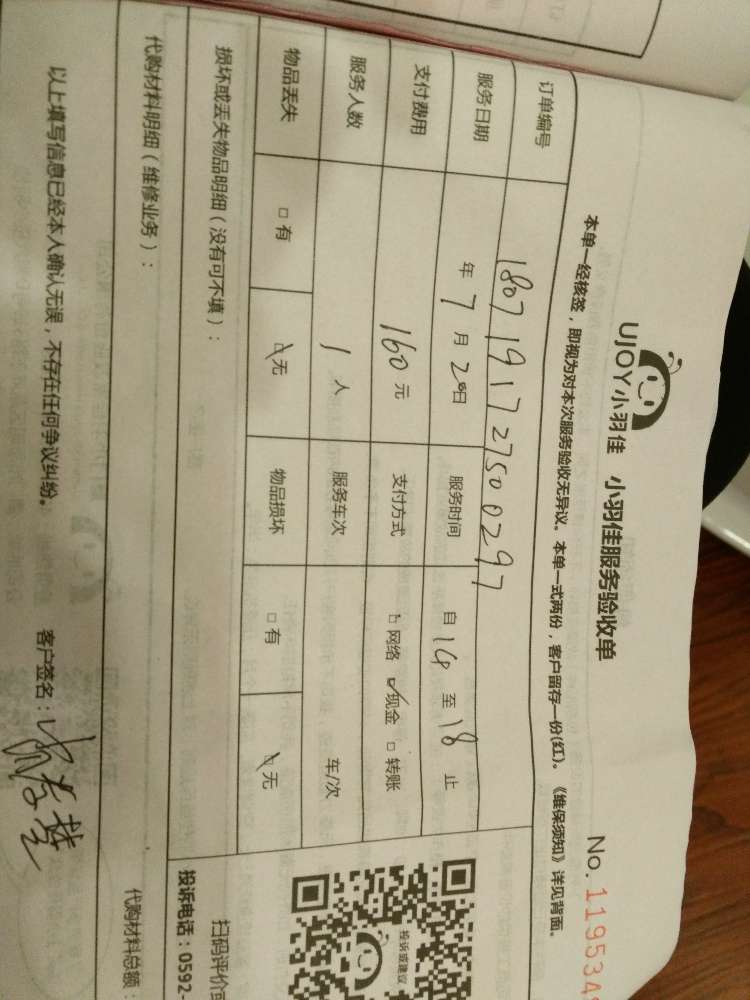 UJOY小羽佳 小羽佳服务验收单
No. 119534
本单一经核签，即视为对本次服务验收无异议。本单一式两份，客户留存一份(红)。《维保须知》详见背面。
订单编号 1807191727500297
服务日期 年 7 月 20日 服务时间 自 14 至 18 止
支付费用 160 元 支付方式 □ 网络 ☑ 现金 □ 转账
服务人数 1 人 服务车次 车/次
物品丢失 □ 有 ☑ 无 物品损坏 □ 有 ☑ 无
损坏或丢失物品明细（没有可不填）：
投诉或建议
扫码评价
投诉电话：0592-
代购材料明细（维修业务）：
代购材料总额：
以上填写信息已经本人确认无误，不存在任何争议纠纷。 客户签名：